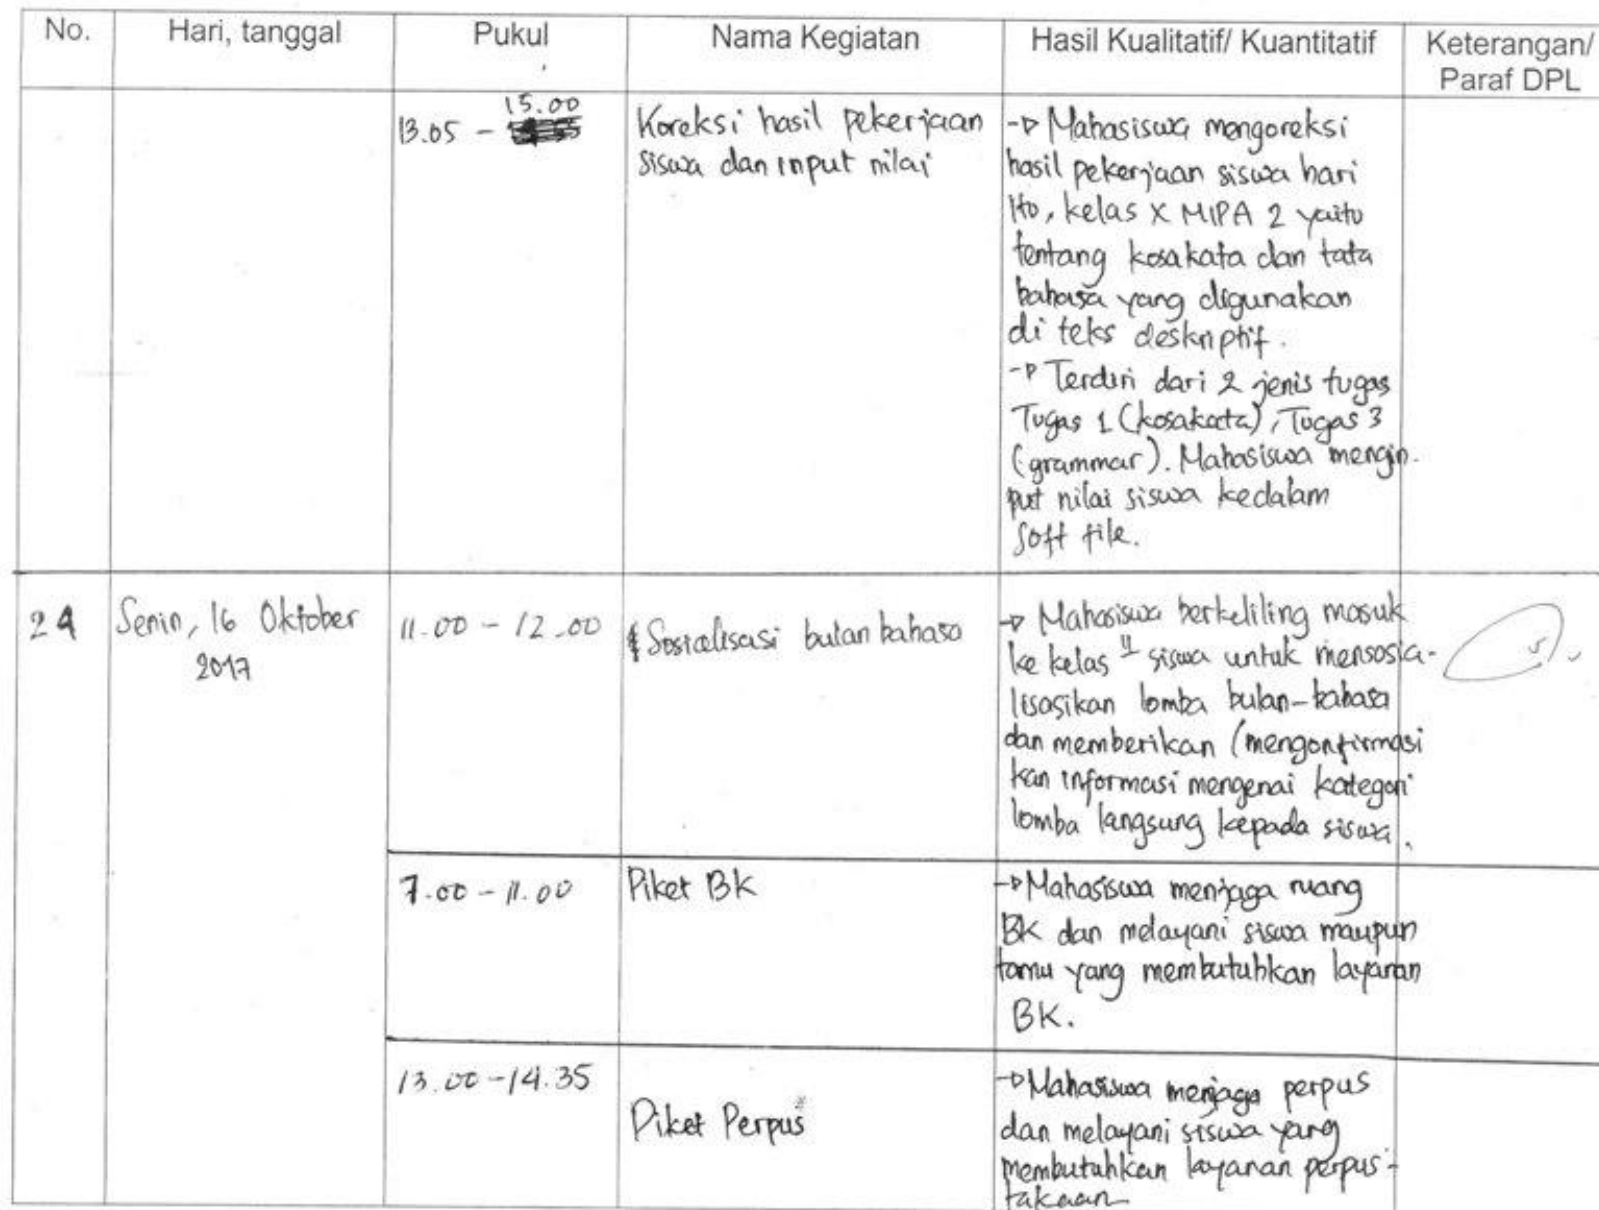 No. Hari, tanggal Pukul Nama Kegiatan Hasil Kualitatif/ Kuantitatif Keterangan/
Paraf DPL
15.00
13.05 -
Koreksi hasil pekerjaan
siswa dan input nilai
-> Mahasiswa mengoreksi
hasil pekerjaan siswa hari
itu, kelas X MIPA 2 yaitu
tentang kosakata dan tata
bahasa yang digunakan
di teks deskriptif.
-> Terdiri dari 2 jenis tugas
Tugas 1 (kosakata), Tugas 3
(grammar). Mahasiswa mengin-
put nilai siswa kedalam
soft file.
24 Senin, 16 Oktober
2017
11.00 - 12.00
Sosialisasi bulan bahasa
-> Mahasiswa berkeliling masuk
ke kelas" siswa untuk mensosia-
lisasikan lomba bulan-bahasa
dan memberikan (mengonfirmasi
kan informasi mengenai kategori
lomba langsung kepada siswa.
7.00 - 11.00
Piket BK
-> Mahasiswa menjaga ruang
BK dan melayani siswa maupun
tamu yang membutuhkan layanan
BK.
13.00 - 14.35
Piket Perpus
-> Mahasiswa menjaga perpus
dan melayani siswa yang
membutuhkan layanan perpus-
takaan